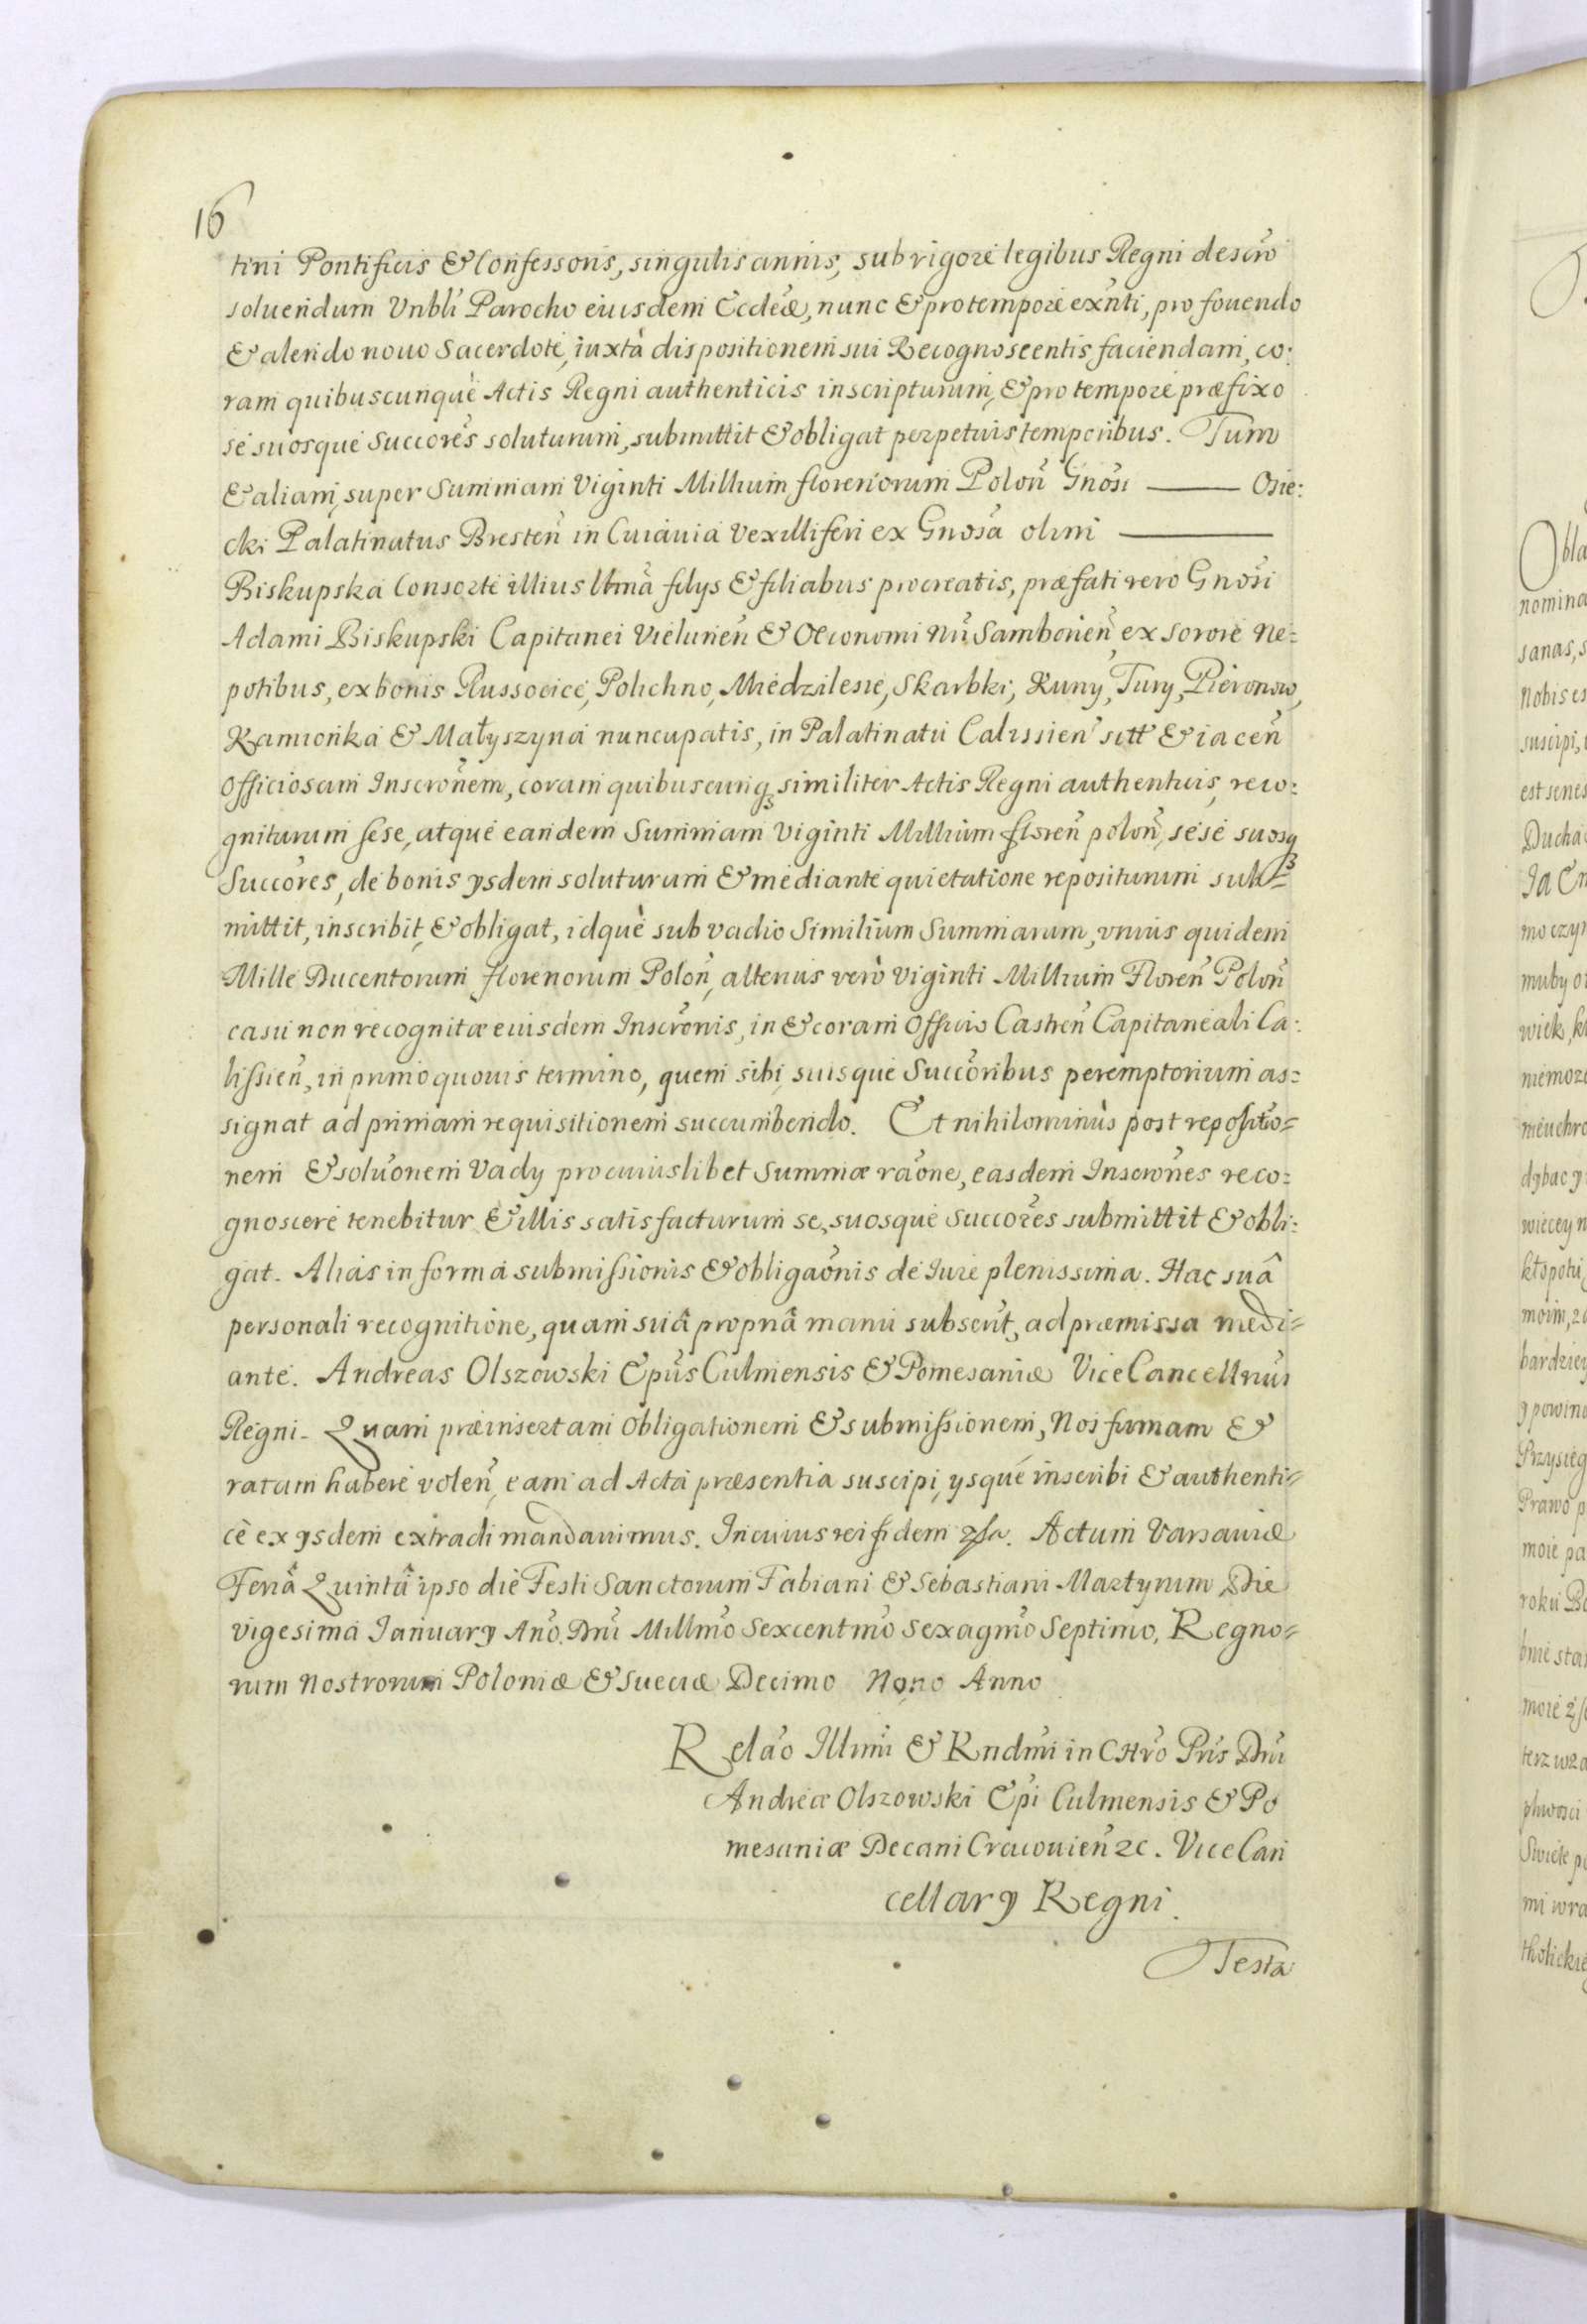 16
tini Pontificis & Confessoris, singulis annis, sub rigore legibus Regni descro
soluendum Vnbli Parocho eiusdem Ecclæ, nunc & pro tempore exnti, pro fouendo
& alendo nouo Sacerdote, iuxta dispositionem sui Recognoscentis faciendam, co:
ram quibuscunque Actis Regni authenticis inscripturum, & pro tempore præfixo
se suosque Succores soluturum, submittit & obligat perpetuis temporibus. Tum
& aliam, super Summam Viginti Millium florenorum Polon Gnosi —— Osie:
cki Palatinatus Bresten in Cuiauia Vexilliferi ex Gnosa olim ———
Biskupska Consorte illius ltma filys & filiabus procreatis, præfati vero Gnosi
Adami Biskupski Capitanei Vielunen & Oeconomi Nri Samborien, ex sorore Ne=
potibus, ex bonis Russocice, Polichno, Miedzilesie, Skarbki, Kuny, Tury, Pieronow,
Kamionka & Małyszyna nuncupatis, in Palatinatu Calissien sitt & iacen
Officiosam Inscronem, coram quibuscunq similiter Actis Regni authenticis, reco:
gniturum sese, atque eandem Summam Viginti Millium floren polon, sese suosq
Succores, de bonis ysdem soluturum & mediante quietatione repositurum sub=
mittit, inscribit, & obligat, idque sub vadio Similium Summarum, vnius quidem
Mille Ducentorum florenorum Polon, alterius vero Viginti Millium Floren Polon
casu non recognitæ eiusdem Inscronis, in & coram Officio Castren Capitaneali Ca:
lissien, in primo quouis termino, quem sibi, suisque Succoribus peremptorium as=
signat ad primam requisitionem succumbendo. Et nihilominus post repositio=
nem & soluonem Vady pro cuiuslibet Summæ raone, easdem Inscrones reco:
gnoscere tenebitur & illis satisfacturum se, suosque Succores submittit & obli:
gat. Alias in forma submissionis & obligaonis de Iure plenissima. Hac suâ
personali recognitione, quam suâ propriâ manu subscrit, ad præmissa medi=
ante. Andreas Olszowski Epus Culmensis & Pomesaniæ Vice Cancellrius
Regni. Quam præinsertam Obligationem & submissionem, Nos firmam &
ratam habere volen, eam ad Acta præsentia suscipi, ysque inscribi & authenti=
ce ex ysdem extradi mandauimus. In cuius rei fidem &c. Actum Varsauiæ
Feriâ Quintâ ipso die Festi Sanctorum Fabiani & Sebastiani Martyrum Die
vigesima January Ano. Dni Millmo Sexcentmo Sexagmo Septimo, Regno=
rum Nostrorum Poloniæ & Sueciæ Decimo Nono Anno
Relao Illmi & Rndmi in CHro Pris Dni
Andreæ Olszowski Epi Culmensis & Po
mesaniæ Decani Cracouien &c. Vice Can
cellary Regni.
Testa